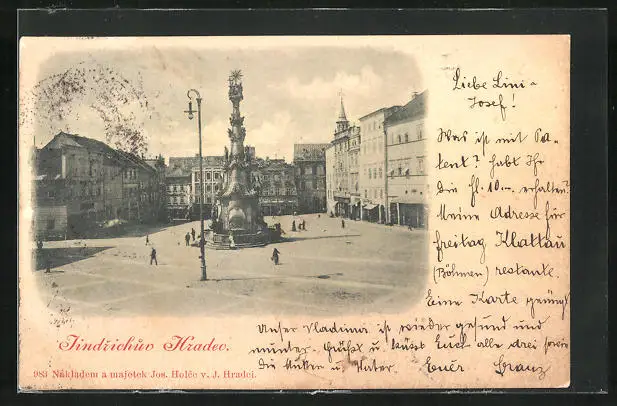 Liebe Lini-
Josef!
Was ist mit Pa-
tent? habt Ihr
die fl. 10.— erhalten?
Meine Adresse für
freitag Klattau
(Böhmen) restante.
Eine Karte genügt
Unser Vladimir ist wieder gesund und
munter. Grüßt u. küsst Euch alle drei sowie
die Mutter u. Vater. Euer Franz
Jindřichův Hradec.
983 Nákladem a majetek Jos. Holče v. J. Hradci.